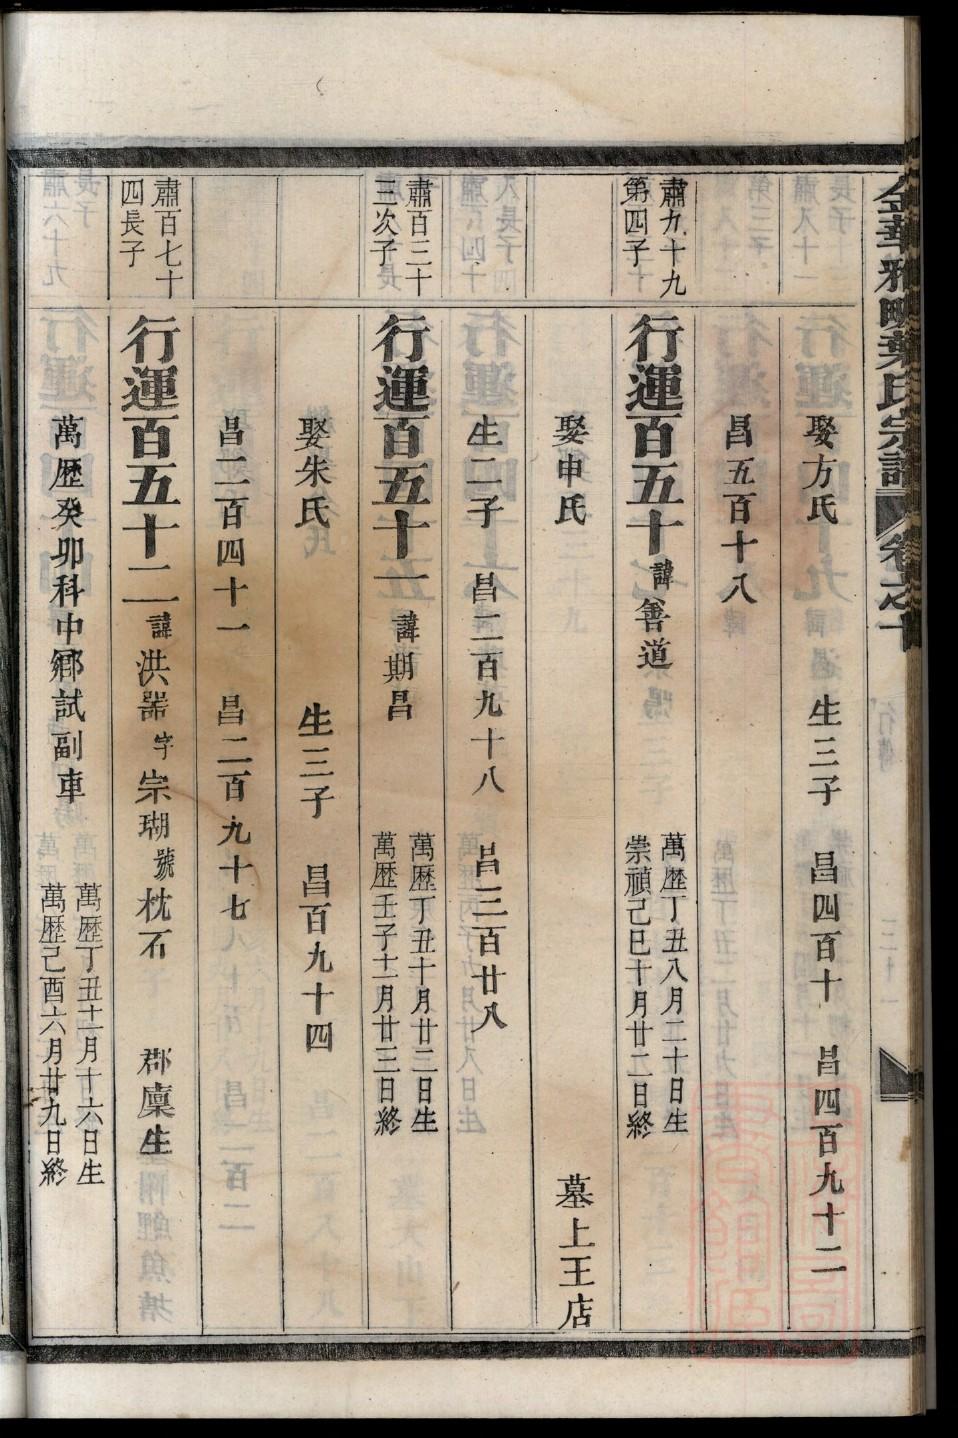 金華雅畈葉氏宗譜 卷之十 行傳
娶方氏 生三子 昌四百十 昌四百九十二
昌五百十八
肅九十九
第四子
行運百五十 諱善道 萬歴丁丑八月二十日生
崇禎己巳十月廿二日終
娶申氏 墓上王店
生二子 昌二百九十八 昌三百廿八
肅百三十
三次子
行運百五十一 諱期昌 萬歴丁丑十月廿三日生
萬歴壬子十一月廿三日終
娶朱氏 生三子 昌百九十四
昌二百四十一 昌二百九十七
肅百七十
四長子
行運百五十二 諱洪器 字宗瑚 號枕石 郡廩生
萬歴癸卯科中鄉試副車 萬歴丁丑十二月十六日生
萬歴己酉六月廿九日終